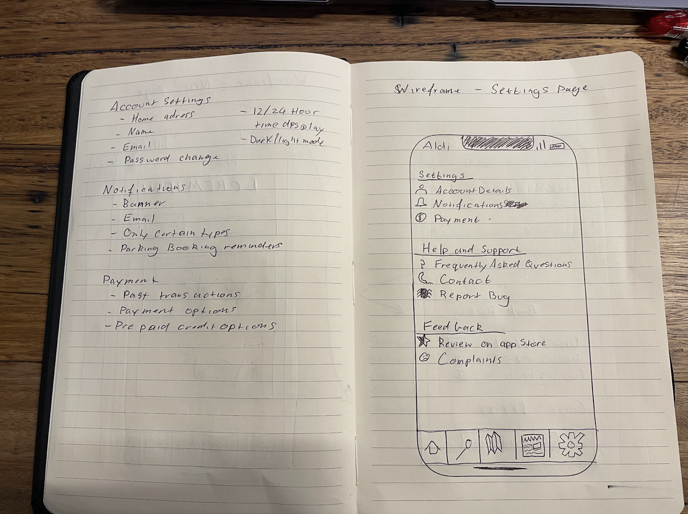 Account Settings
- Home adress
- Name
- Email
- Password change
- 12/24 Hour
time display
- Dark/light mode
Notifications
- Banner
- Email
- Only Certain types
- Parking Booking reminders
Payment
- Past transactions
- Payment options
- Pre paid credit options
Wireframe - Settings page
Aldi
Settings
Account Details
Notifications
Payment
Help and Support
? Frequently Asked Questions
Contact
Report Bug
Feedback
Review on app Store
Complaints